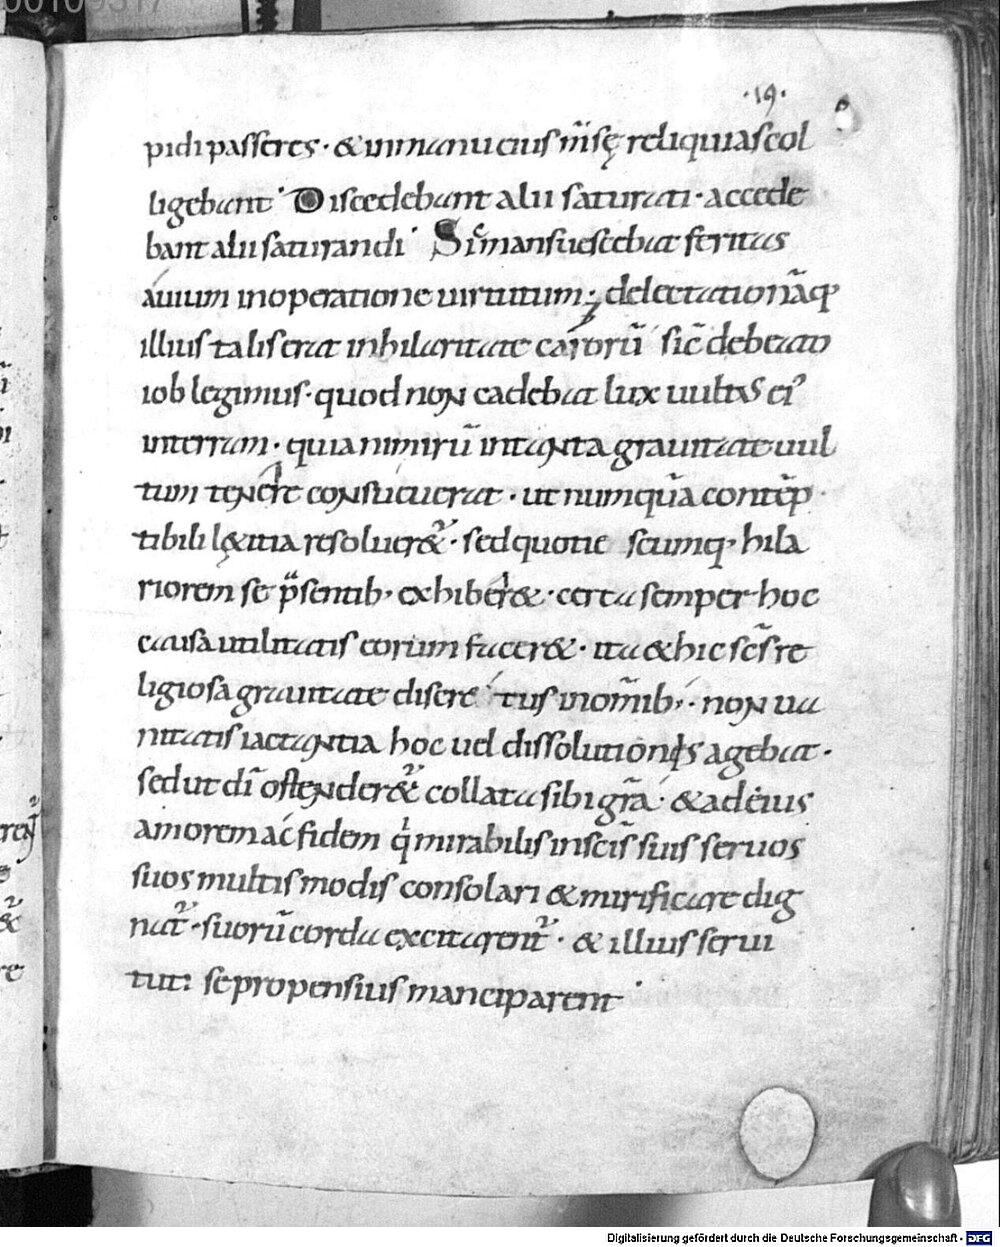 ·19·
pidi passeres· & in manu eius m̅sę reliquias col
ligebant· Discedebant alii saturati· accede
bant alii saturandi· Sic mansuescebat feritas
auium in operatione uirtutum; delectationāq;
illius talis erat in hilaritate ca orū sic̄ de beato
iob legimus· quod non cadebat lux uultus ei᾿
in terram· quia nimirū in tanta grauitate uul
tum tenere consueuerat· ut numquā contēp
tibili lętitia resoluer&ur· sed quotie scumq; hila
riorem se p̄sentib; exhiber&· certa semper hoc
causa utilitatis eorum facer&· ita & hic sc̄s re
ligiosa grauitate discre tus in om̄ib;· non ua
nitatis iactantia hoc uel dissolutionis agebat·
sed ut dī ostender&ur collata sibi gr̄a· & ad eius
amorem ac fidem q̇ mirabilis in sc̄is suis seruos
suos multis modis consolari & mirificare dig
nat᷑· suorū corda excitarent᷑· & illius serui
tuti se propensius manciparent·
Digitalisierung gefördert durch die Deutsche Forschungsgemeinschaft - DFG